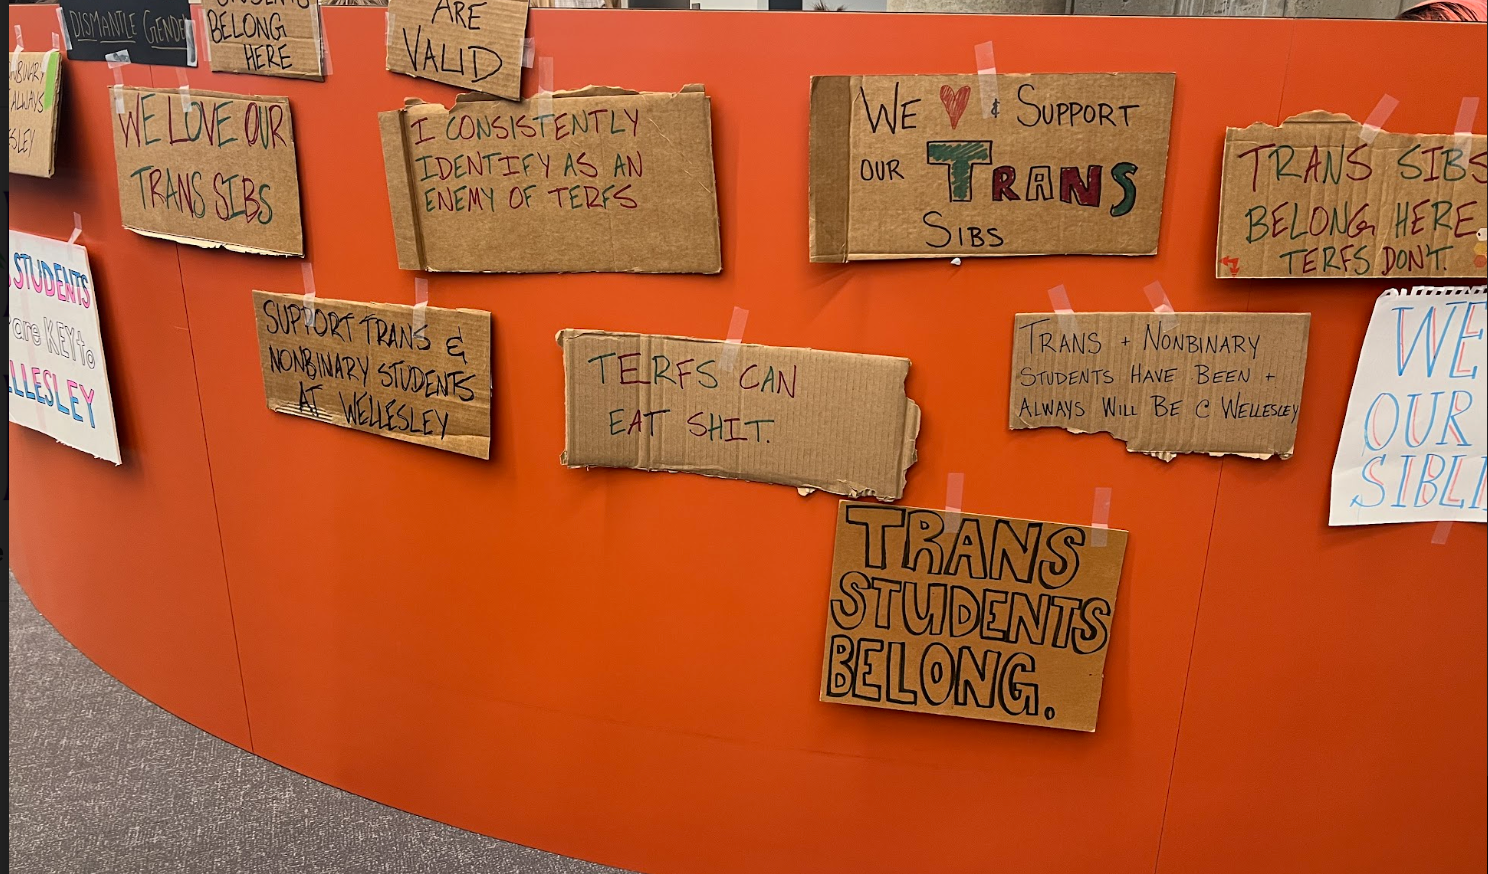 DISMANTLE GENDE
BELONG
HERE
ARE
VALID
ALWAYS
SLEY
WE LOVE OUR
TRANS SIBS
I CONSISTENTLY
IDENTIFY AS AN
ENEMY OF TERFS
WE ♥ & SUPPORT
OUR TRANS
SIBS
TRANS SIBS
BELONG HERE
TERFS DON'T.
STUDENTS
are KEY to
LLESLEY
SUPPORT TRANS &
NONBINARY STUDENTS
AT WELLESLEY
TERFS CAN
EAT SHIT.
TRANS + NONBINARY
STUDENTS HAVE BEEN +
ALWAYS WILL BE @ WELLESLEY
WE
OUR
SIBLI
TRANS
STUDENTS
BELONG.